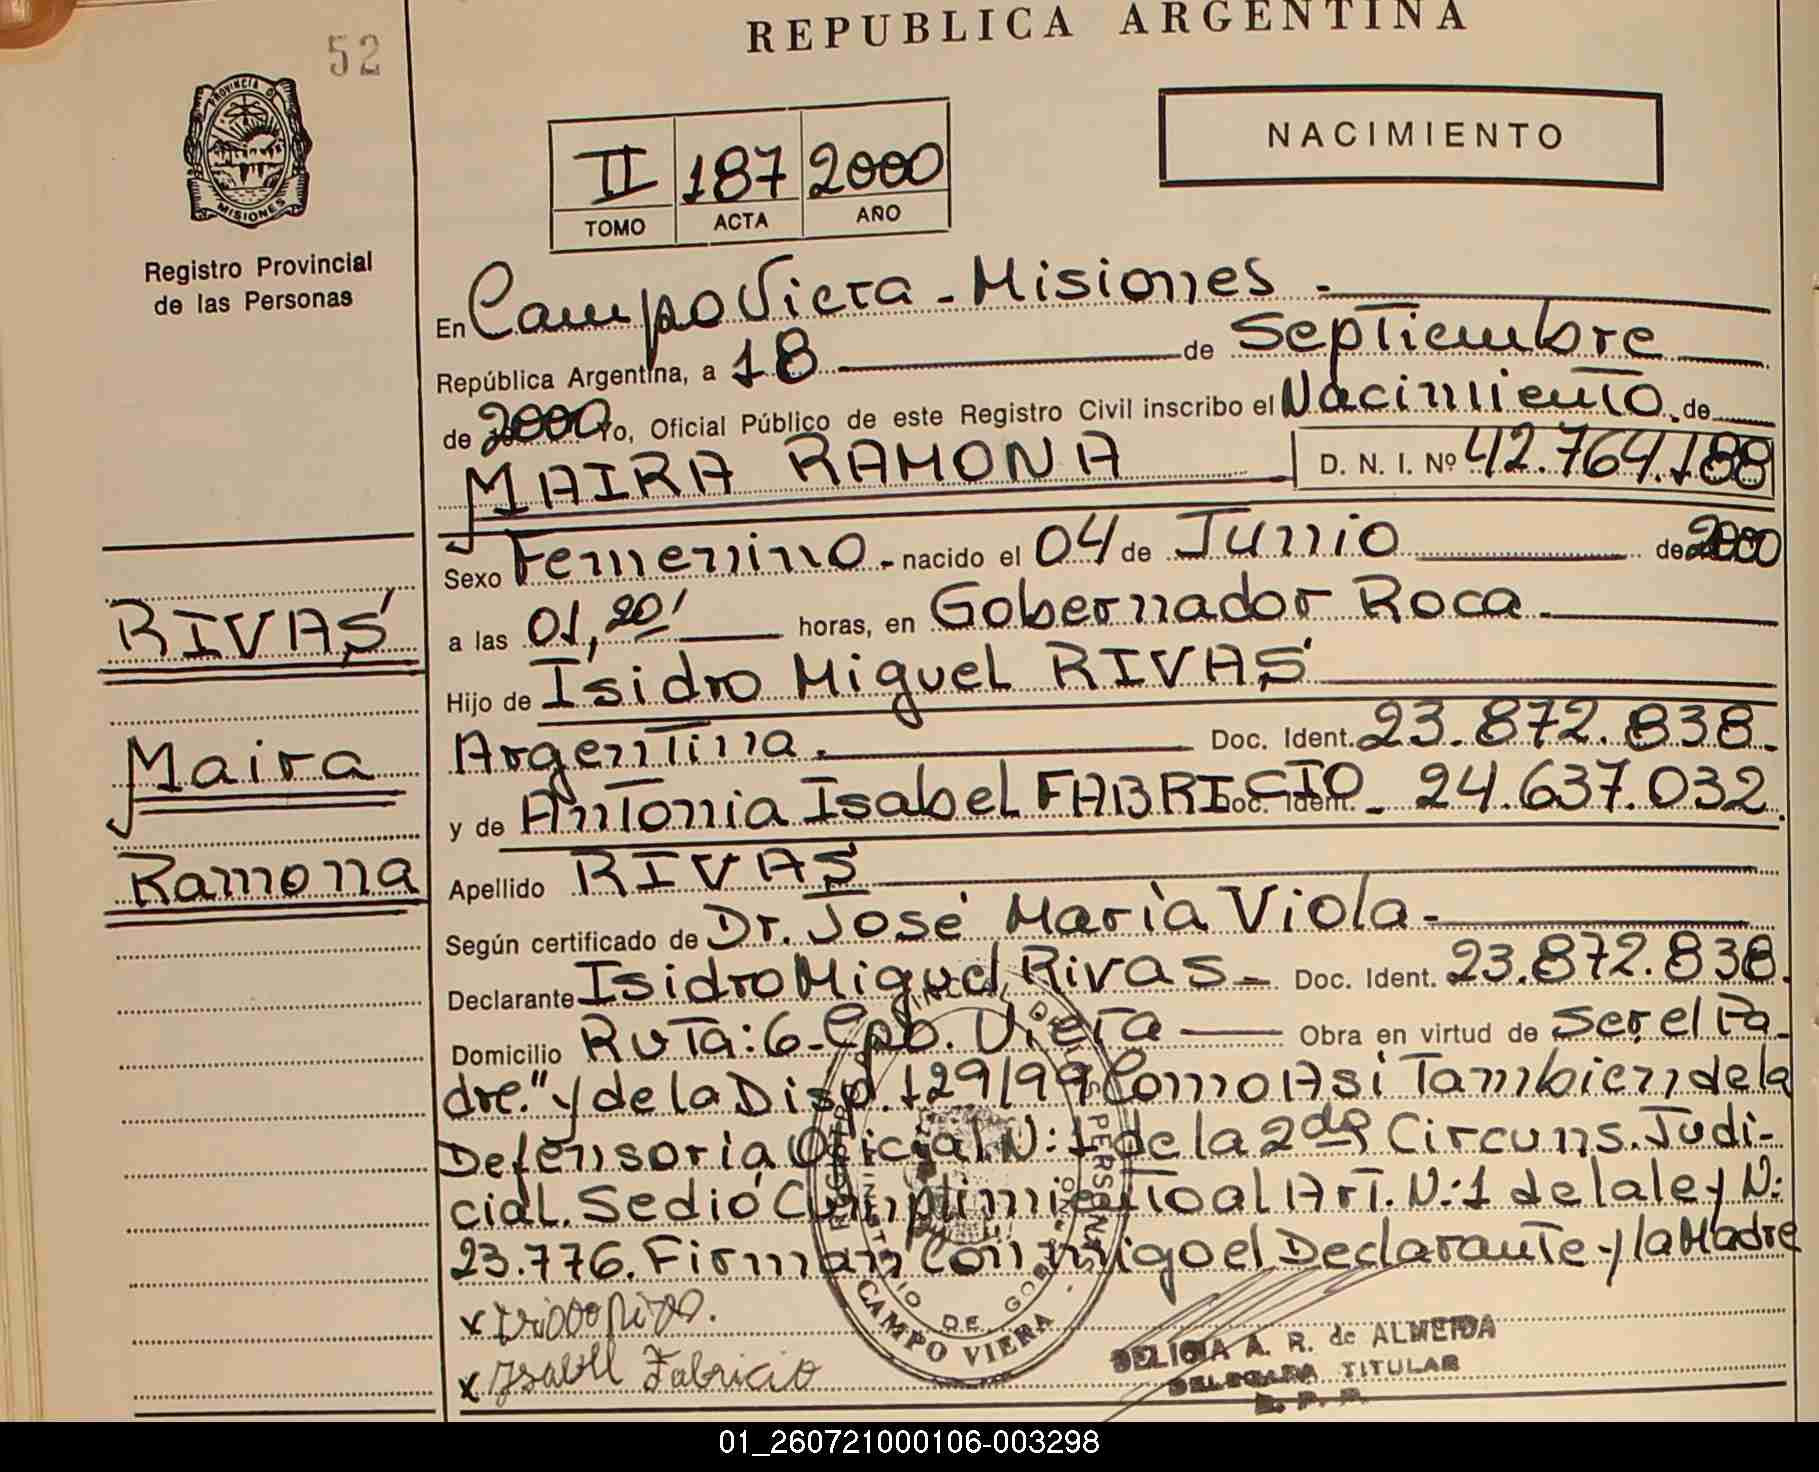 REPUBLICA ARGENTINA
52
PROVINCIA D
MISIONES
Registro Provincial
de las Personas
NACIMIENTO
II 187 2000
TOMO ACTA AÑO
En Campo Viera - Misiones -
República Argentina, a 18 de Septiembre
de 2000 Yo, Oficial Público de este Registro Civil inscribo el Nacimiento de
MAIRA RAMONA D. N. I. Nº 42.764.188
Sexo Femenino - nacido el 04 de Junio de 2000
a las 01,20' horas, en Gobernador Roca -
Hijo de Isidro Miguel RIVAS
Argentina. Doc. Ident. 23.872.838.
y de Antonia Isabel FABRICIO Doc. Ident. - 24.637.032
Apellido RIVAS
Según certificado de Dr. José María Viola -
Declarante Isidro Miguel Rivas - Doc. Ident. 23.872.838.
Domicilio Ruta: 6 - Cpo. Viera Obra en virtud de ser, el Pa-
dre." y de la Disp. 129/99 Como Asi Tambien de la
Defensoria Oficial N: 1 de la 2da Circuns. Judi-
cial. Se dió Cumplimiento al Art. N: 1 de la ley N:
23.776. Firman Con migo el Declarante y la Madre
x
x Isabel Fabricio
RIVAS
Maira
Ramona
CAMPO VIERA
DELICIA A. R. de ALMEIDA
DELEGADA TITULAR
01_260721000106-003298